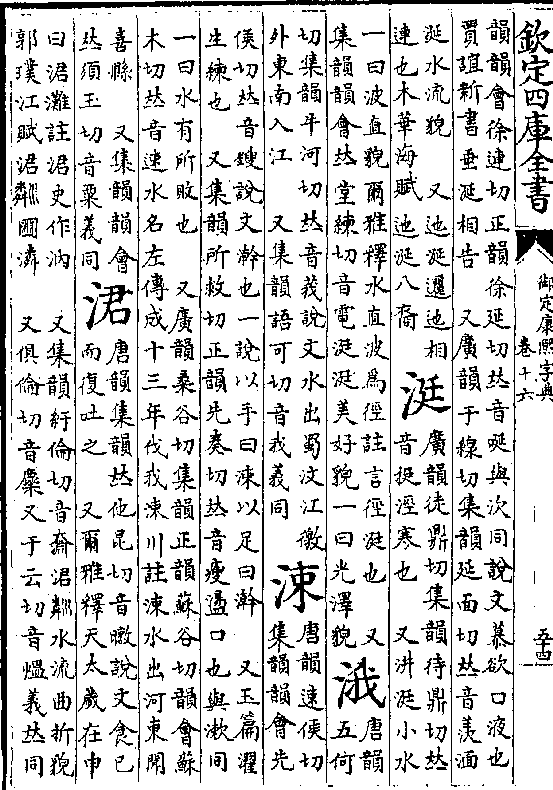 欽定四庫全書
御定康熙字典
卷十六
五十四
韻韻會徐連切正韻徐延切𠀤音唌與次同說文慕欲口液也
賈誼新書垂涎相告　又廣韻于線切集韻延面切𠀤音羨湎
涎水流貌　又迆涎邐迆相
連也木華海賦迆涎八裔
涏
廣韻徒鼎切集韻待鼎切𠀤
音挺涇寒也　又汫涏小水
一曰波直貌爾雅釋水直波為徑註言徑涏也　又唐韻
集韻韻會𠀤堂練切音電涏涏美好貌一曰光澤貌
涐
五何
切集韻牛河切𠀤音莪說文水出蜀汶江徼
外東南入江　又集韻語可切音我義同
涑
唐韻速侯切
集韻韻會先
侯切𠀤音𣯜說文澣也一說以手曰涑以足曰澣　又玉篇濯
生練也　又集韻所救切正韻先奏切𠀤音瘦盪口也與漱同
一曰水有所敗也　又廣韻桑谷切集韻正韻蘇谷切韻會蘇
木切𠀤音速水名左傳成十三年伐我涑川註涑水出河東聞
喜縣　又集韻韻會
𠀤須玉切音粟義同
涒
唐韻集韻𠀤他昆切音暾說文食已
而復吐之　又爾雅釋天太歲在申
曰涒灘註涒史作汭　又集韻紆倫切音奫涒鄰水流曲折貌
郭璞江賦涒鄰圌潾　又俱倫切音麇又于云切音熅義𠀤同